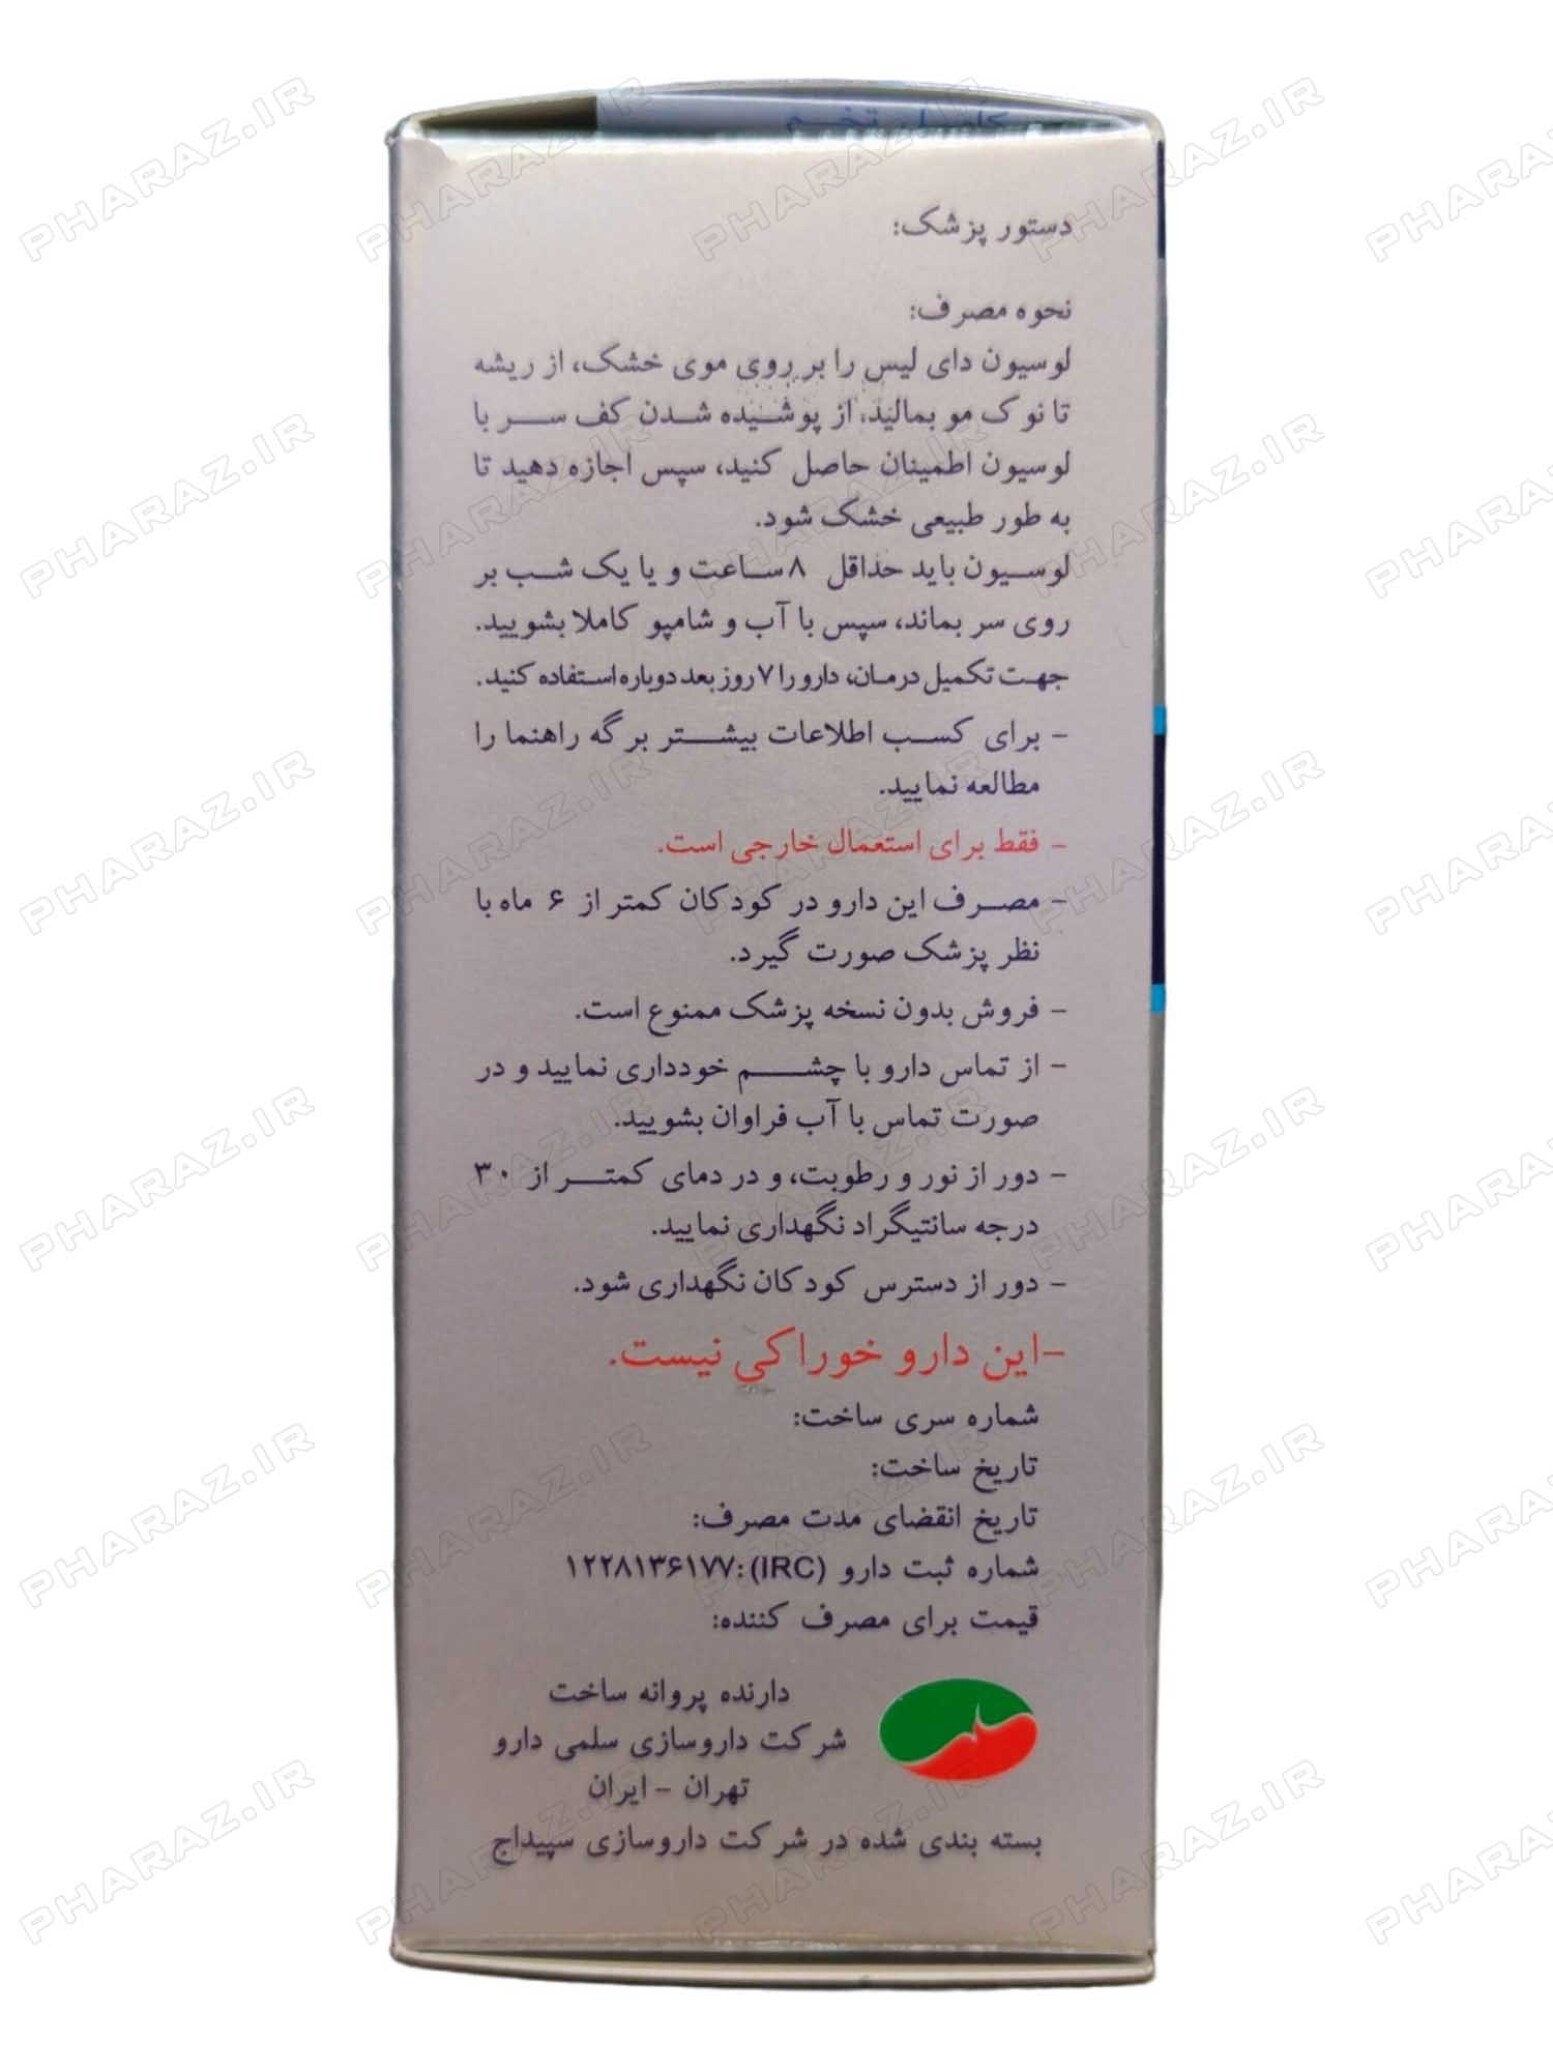 کامل تخم
دستور پزشک:
نحوه مصرف:
لوسیون دای لیس را بر روی موی خشک، از ریشه
تا نوک مو بمالید. از پوشیده شدن کف سر با
لوسیون اطمینان حاصل کنید، سپس اجازه دهید تا
به طور طبیعی خشک شود.
لوسیون باید حداقل ۸ ساعت و یا یک شب بر
روی سر بماند، سپس با آب و شامپو کاملا بشویید.
جهت تکمیل درمان، دارو را ۷ روز بعد دوباره استفاده کنید.
- برای کسب اطلاعات بیشتر برگه راهنما را
مطالعه نمایید.
- فقط برای استعمال خارجی است.
- مصرف این دارو در کودکان کمتر از ۶ ماه با
نظر پزشک صورت گیرد.
- فروش بدون نسخه پزشک ممنوع است.
- از تماس دارو با چشم خودداری نمایید و در
صورت تماس با آب فراوان بشویید.
- دور از نور و رطوبت، و در دمای کمتر از ۳۰
درجه سانتیگراد نگهداری نمایید.
- دور از دسترس کودکان نگهداری شود.
-این دارو خوراکی نیست.
شماره سری ساخت:
تاریخ ساخت:
تاریخ انقضای مدت مصرف:
شماره ثبت دارو (IRC):۱۲۲۸۱۳۶۱۷۷
قیمت برای مصرف کننده:
دارنده پروانه ساخت
شرکت داروسازی سلمی دارو
تهران - ایران
بسته بندی شده در شرکت داروسازی سپیداج
PHARAZ.IR